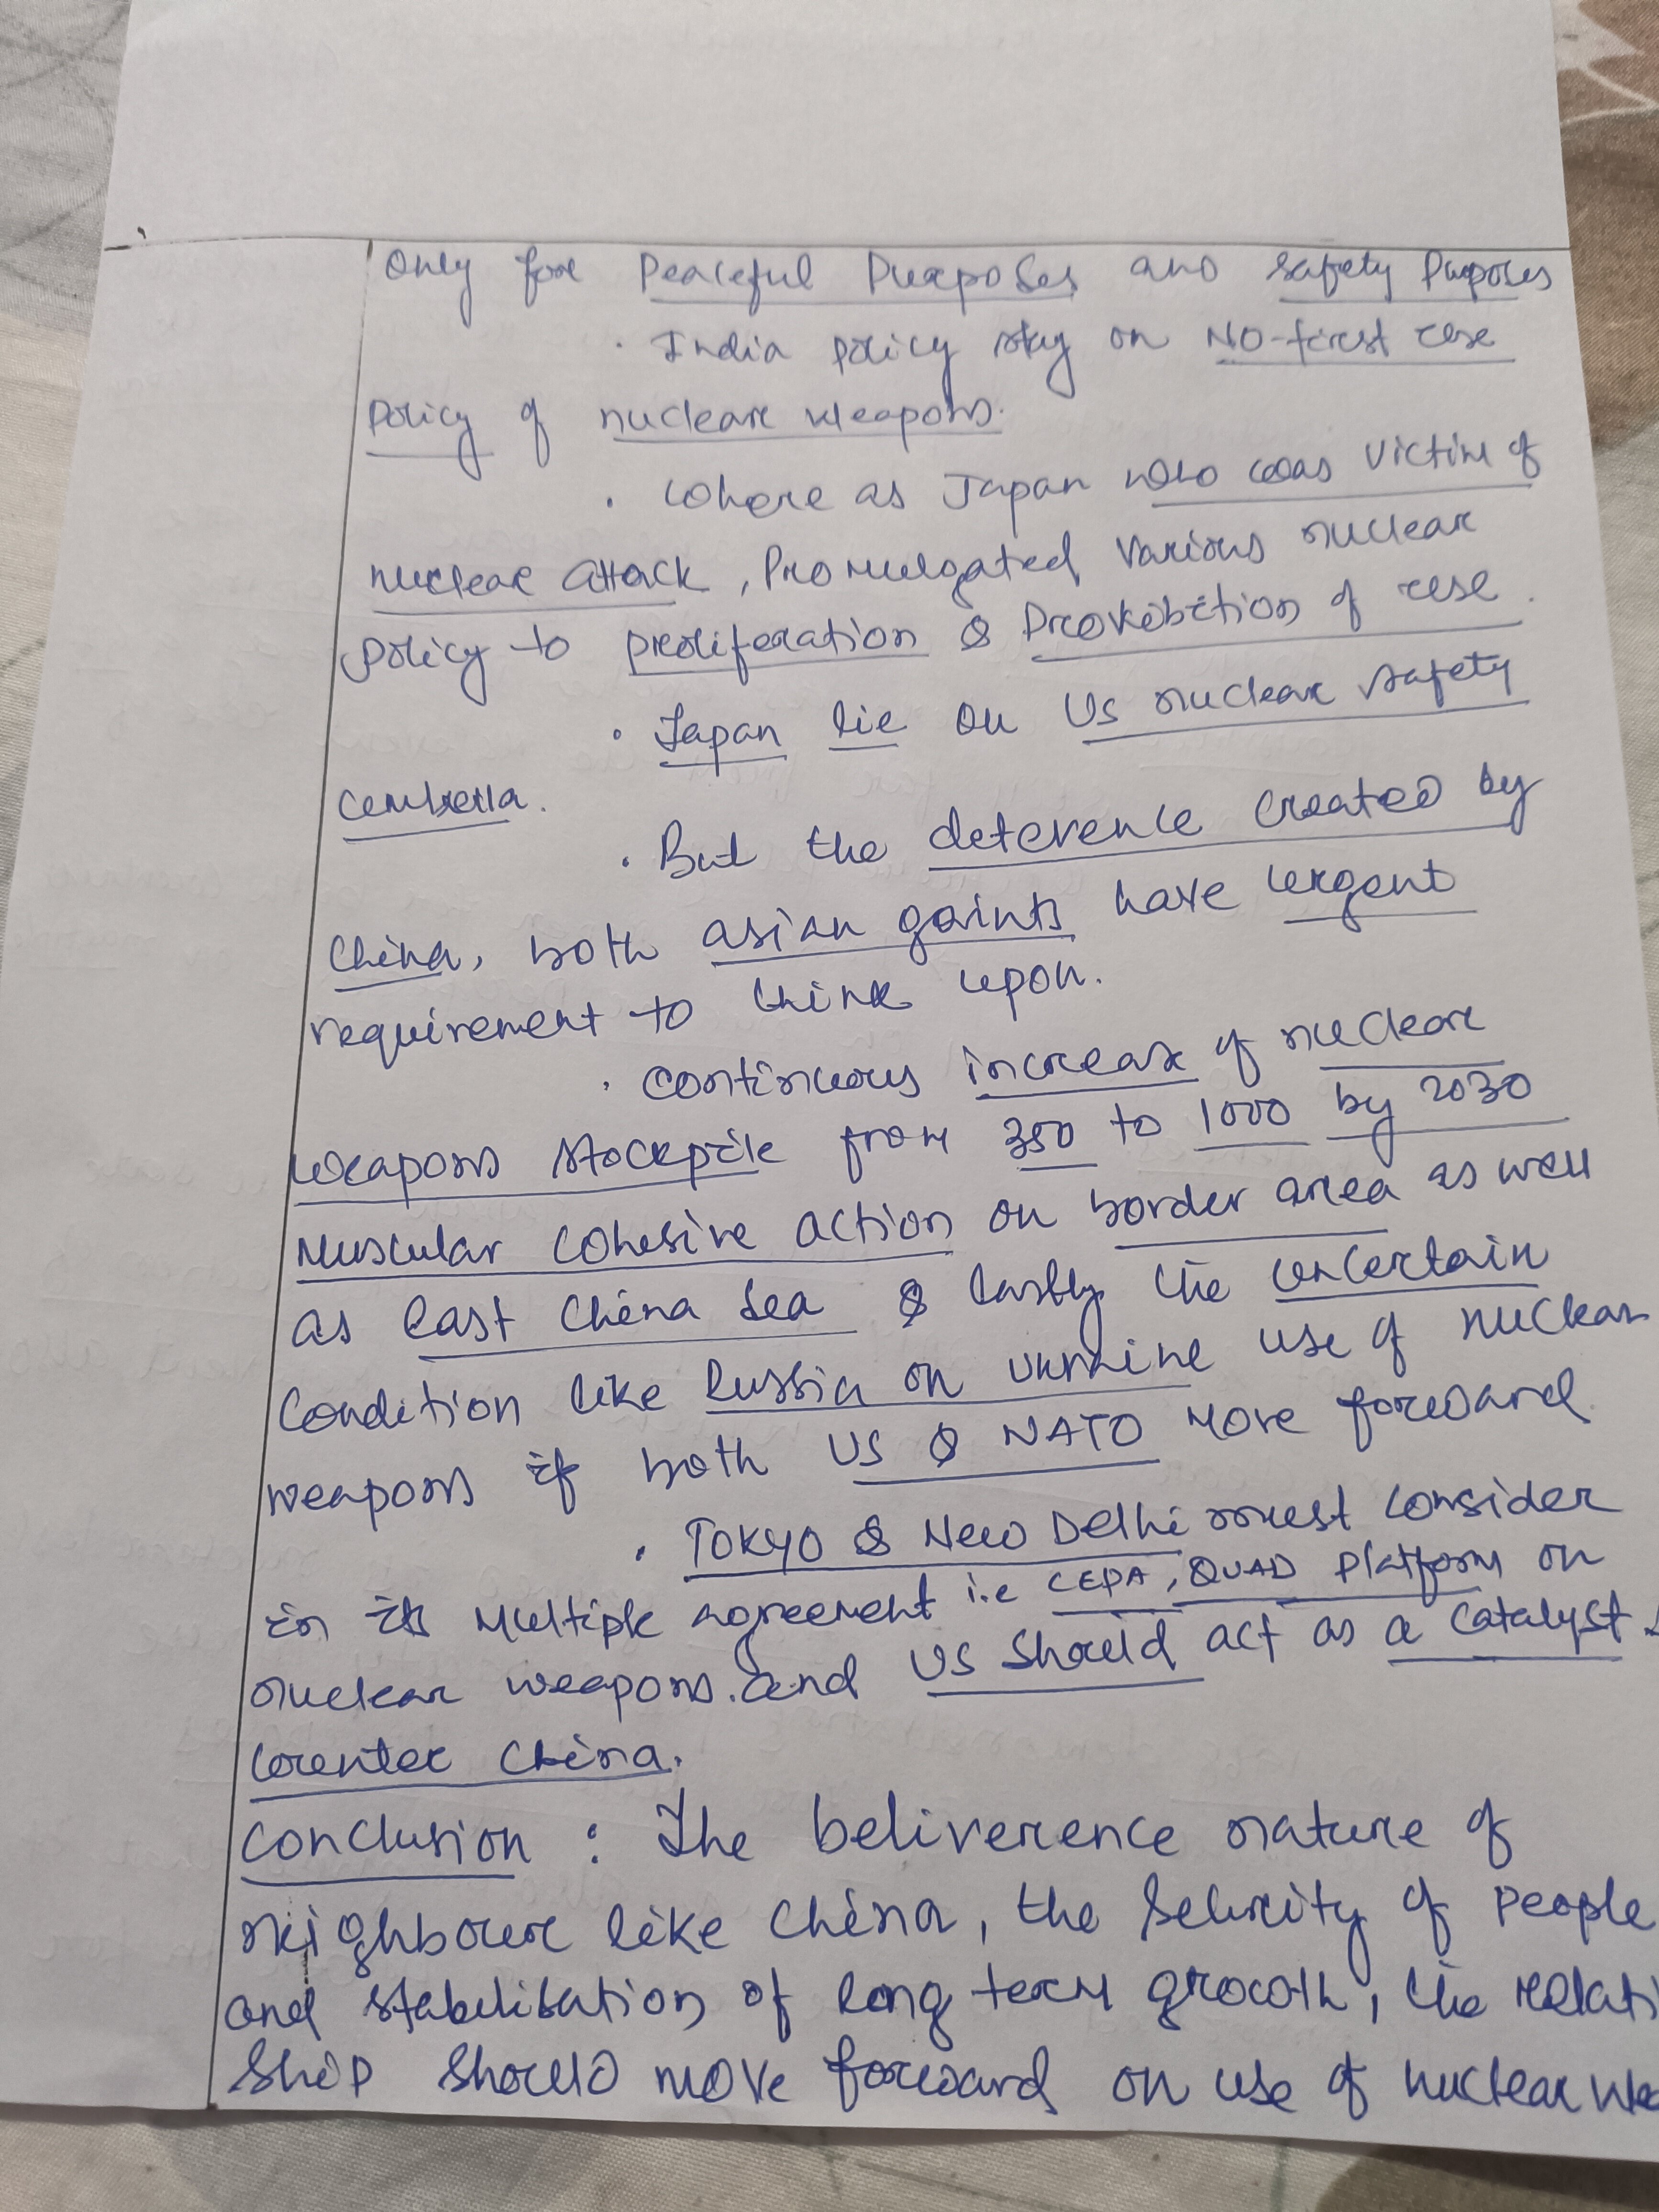 Only for Peaceful Purposes and safety Puposes
· India policy stay on NO-first use
Policy of nuclear weapons.
· Where as Japan who was victim of
nuclear attack, Promulgated various nuclear
policy to proliferation & Prohibition of use.
· Japan lie on US nuclear safety
umbrella.
· But the deterence created by
China, both asian gaints have urgent
requirement to think upon.
· Continuous increase of nuclear
weapons stockpile from 350 to 1000 by 2030
Muscular cohesive action on border area as well
as East China Sea & lastly the uncertain
Condition like Russia on Ukraine use of nuclear
weapons if both US & NATO move forward
· TOKYO & New Delhi must consider
in its Multiple agreement i.e CEPA, QUAD Platform on
nuclear weapons. and US should act as a catalyst
counter China.
Conclusion : The beliverence nature of
neighbour like China, the Security of People
and stabilisation of long term growth, the relati
Ship should move forward on use of nuclear we